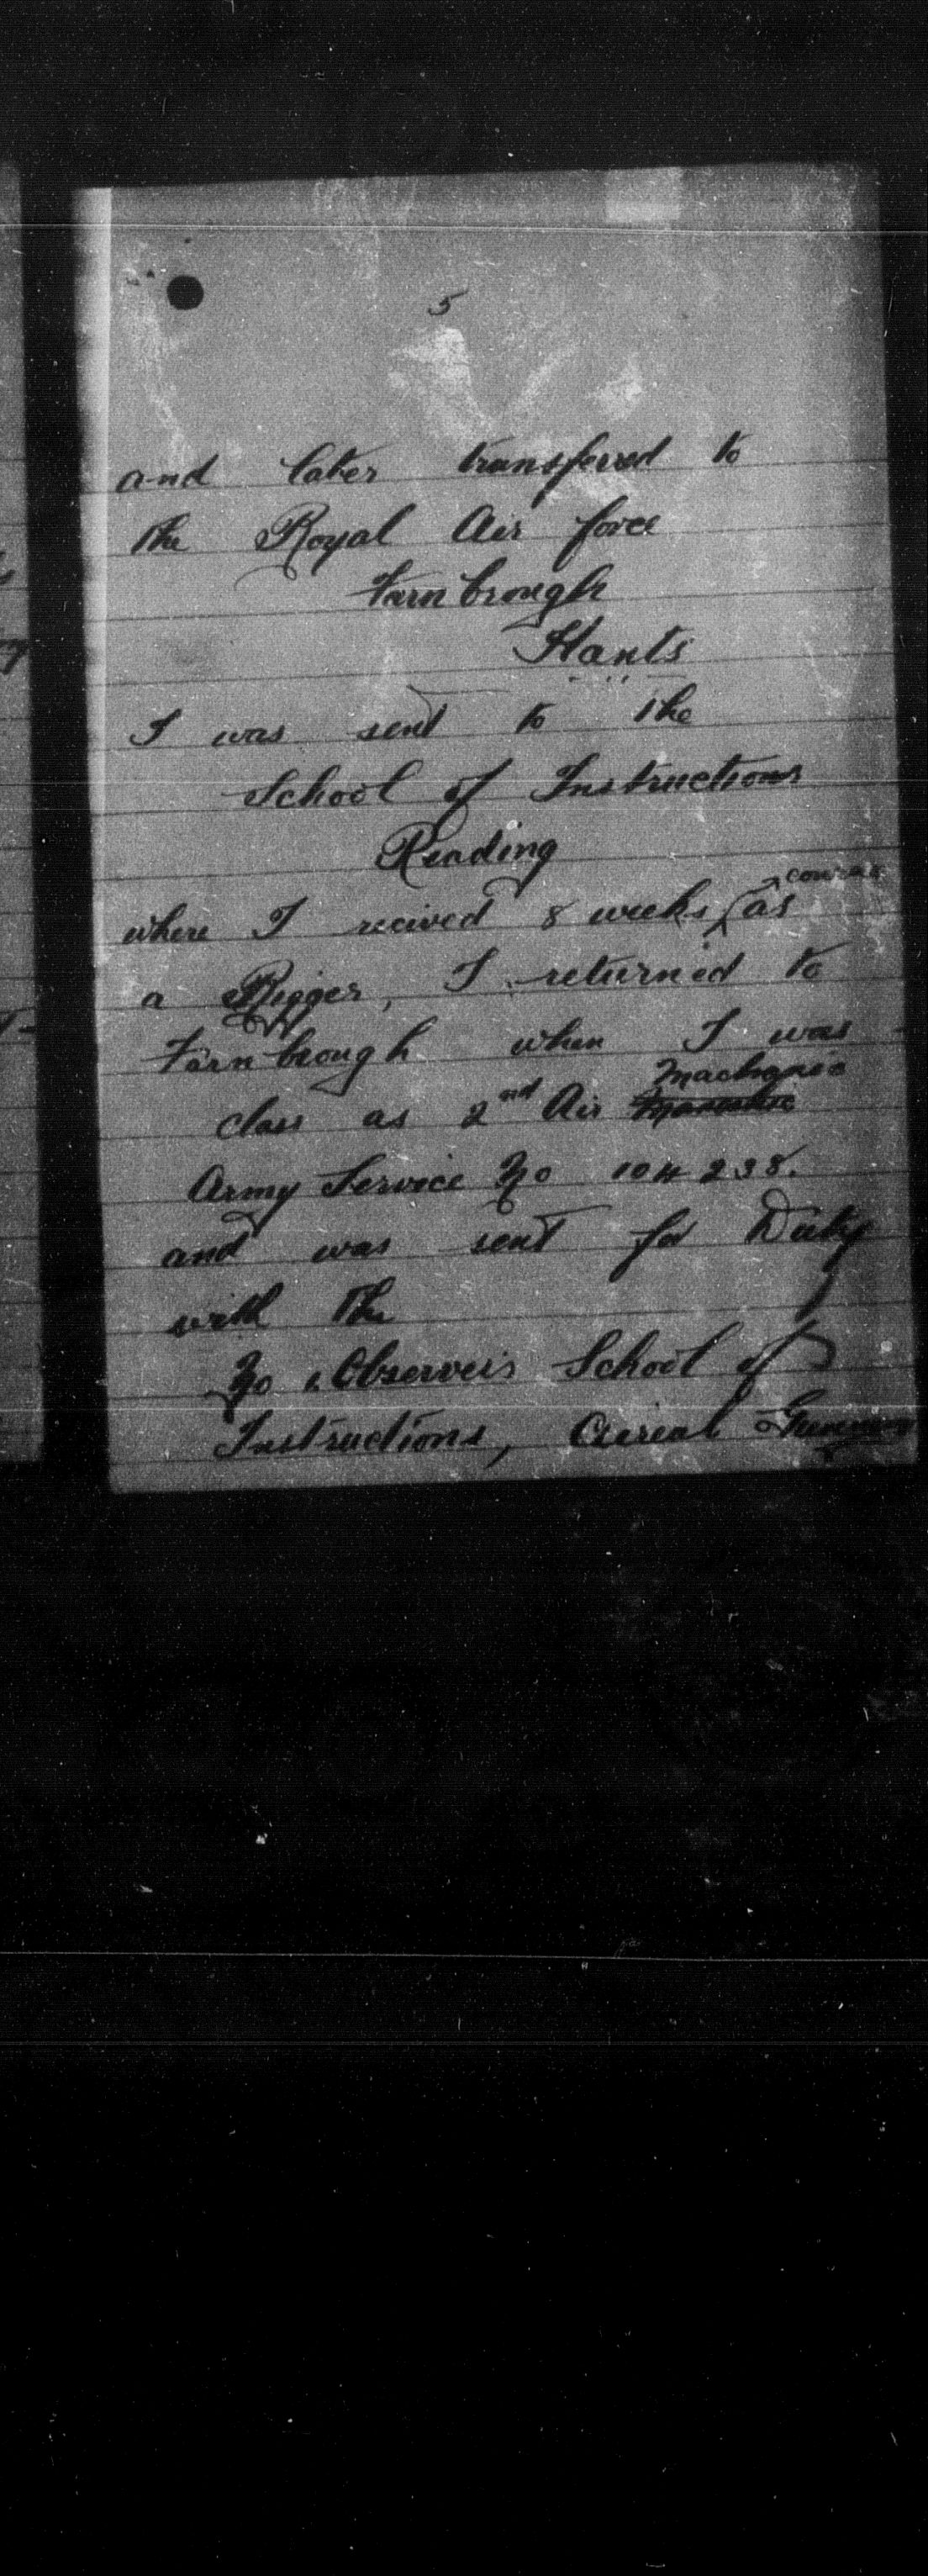 5
and later transferred to
the Royal Air force
Farnbrough
Hants
I was sent to the
School of Instructions
Reading
where I recived 8 weeks course as
a Rigger, I returned to
Farnbrough when I was
class as 2nd Air
Army Service No 104238.
and was sent for Duty
with the
No 1 Observers School of
Instructions, Aerial